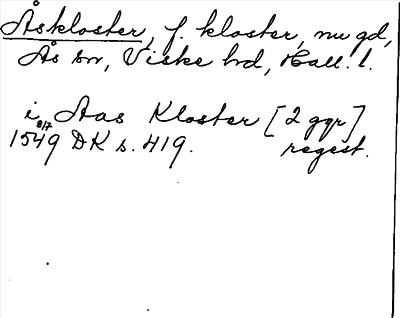 Åskloster, f. kloster, nu gd,
Ås sn, Viske hd, Hall. l.
i Aas Kloster [2 ggr]
8/7
1549 DK s. 419. regest.